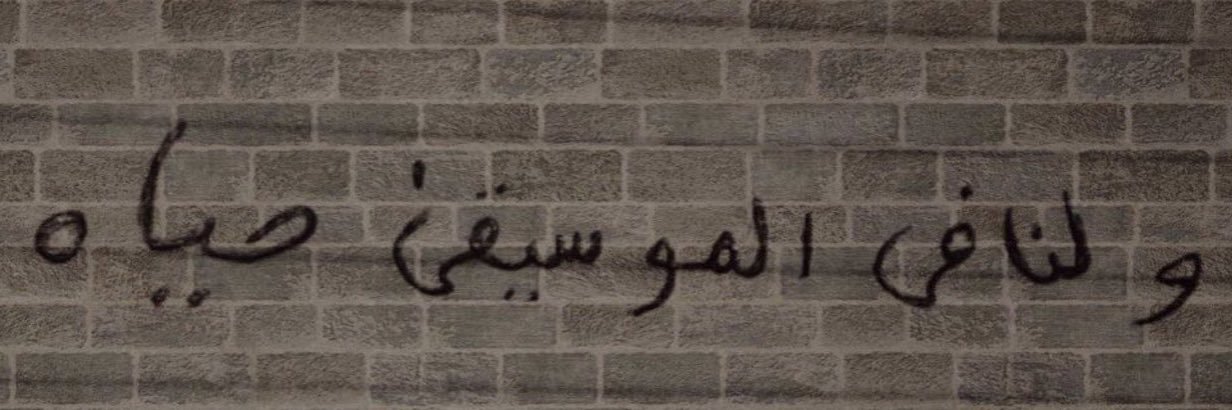 ولنا فى الموسيقىٰ حياه